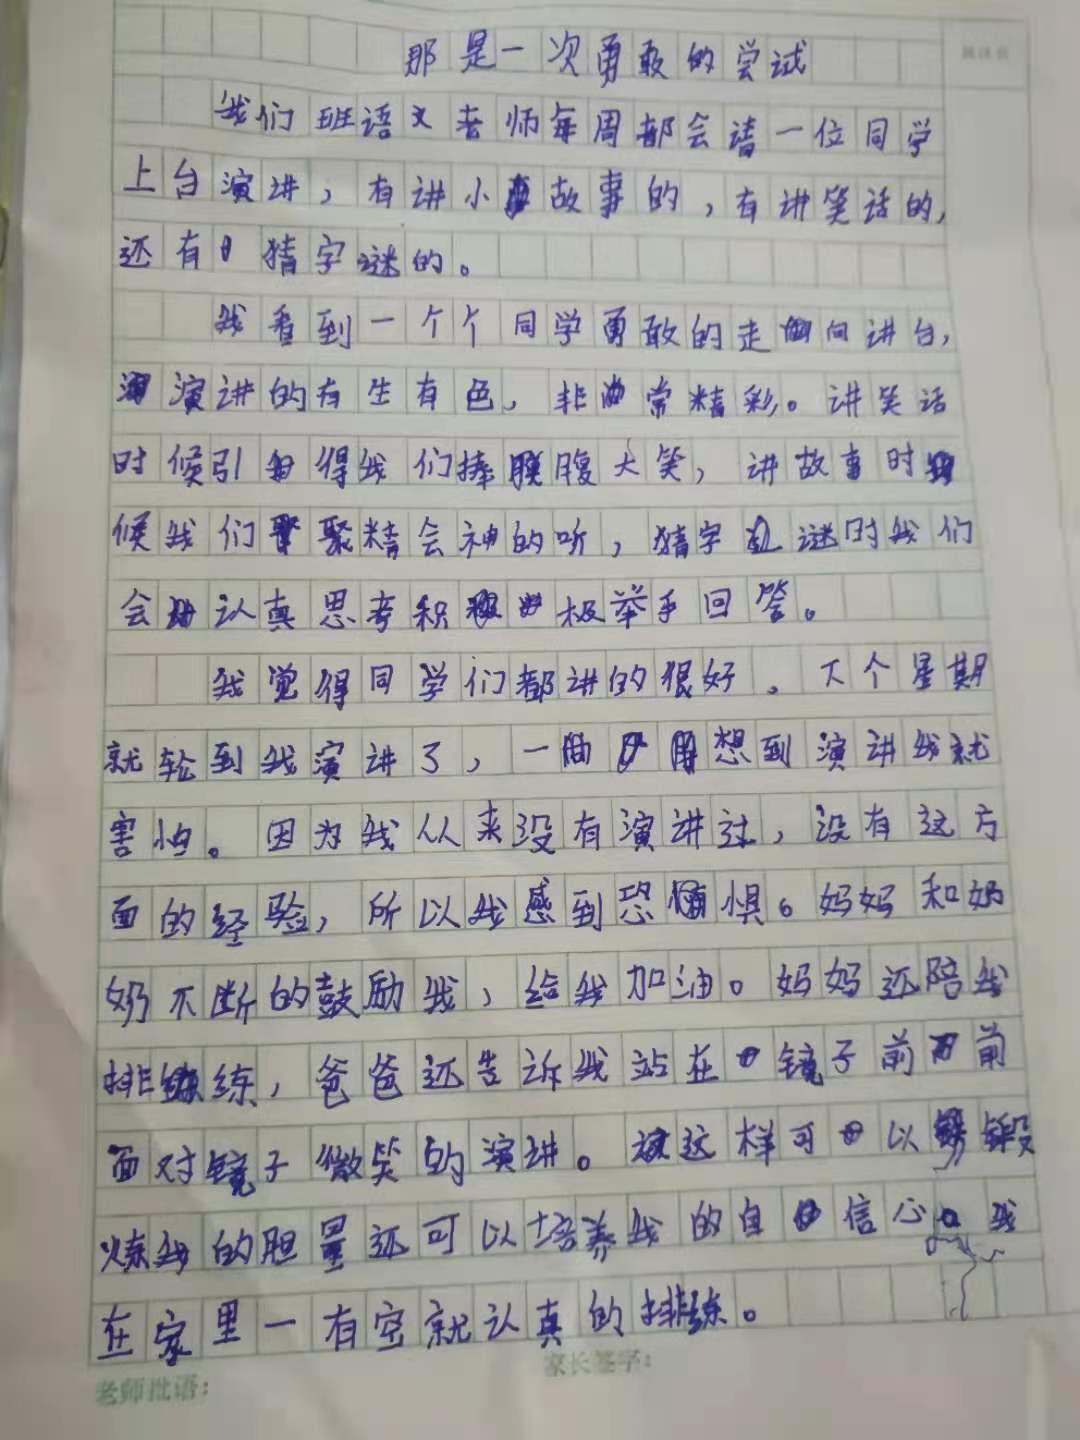 那是一次勇敢的尝试
我们班语文老师每周都会请一位同学
上台演讲，有讲小故事的，有讲笑话的，
还有猜字谜的。
我看到一个个同学勇敢的走向讲台，
演讲的有生有色，非常精彩。讲笑话
时候引得我们捧腹大笑，讲故事时
候我们聚精会神的听，猜字谜时我们
会认真思考积极举手回答。
我觉得同学们都讲的很好。下个星期
就轮到我演讲了，一想到演讲我就
害怕。因为我从来没有演讲过，没有这方
面的经验，所以我感到恐惧。妈妈和奶
奶不断的鼓励我，给我加油。妈妈还陪我
排练，爸爸还告诉我站在镜子前前
面对镜子微笑的演讲。这样可以锻
炼我的胆量还可以培养我的自信心。我
在家里一有空就认真的排练。
家长签字：
老师批语：